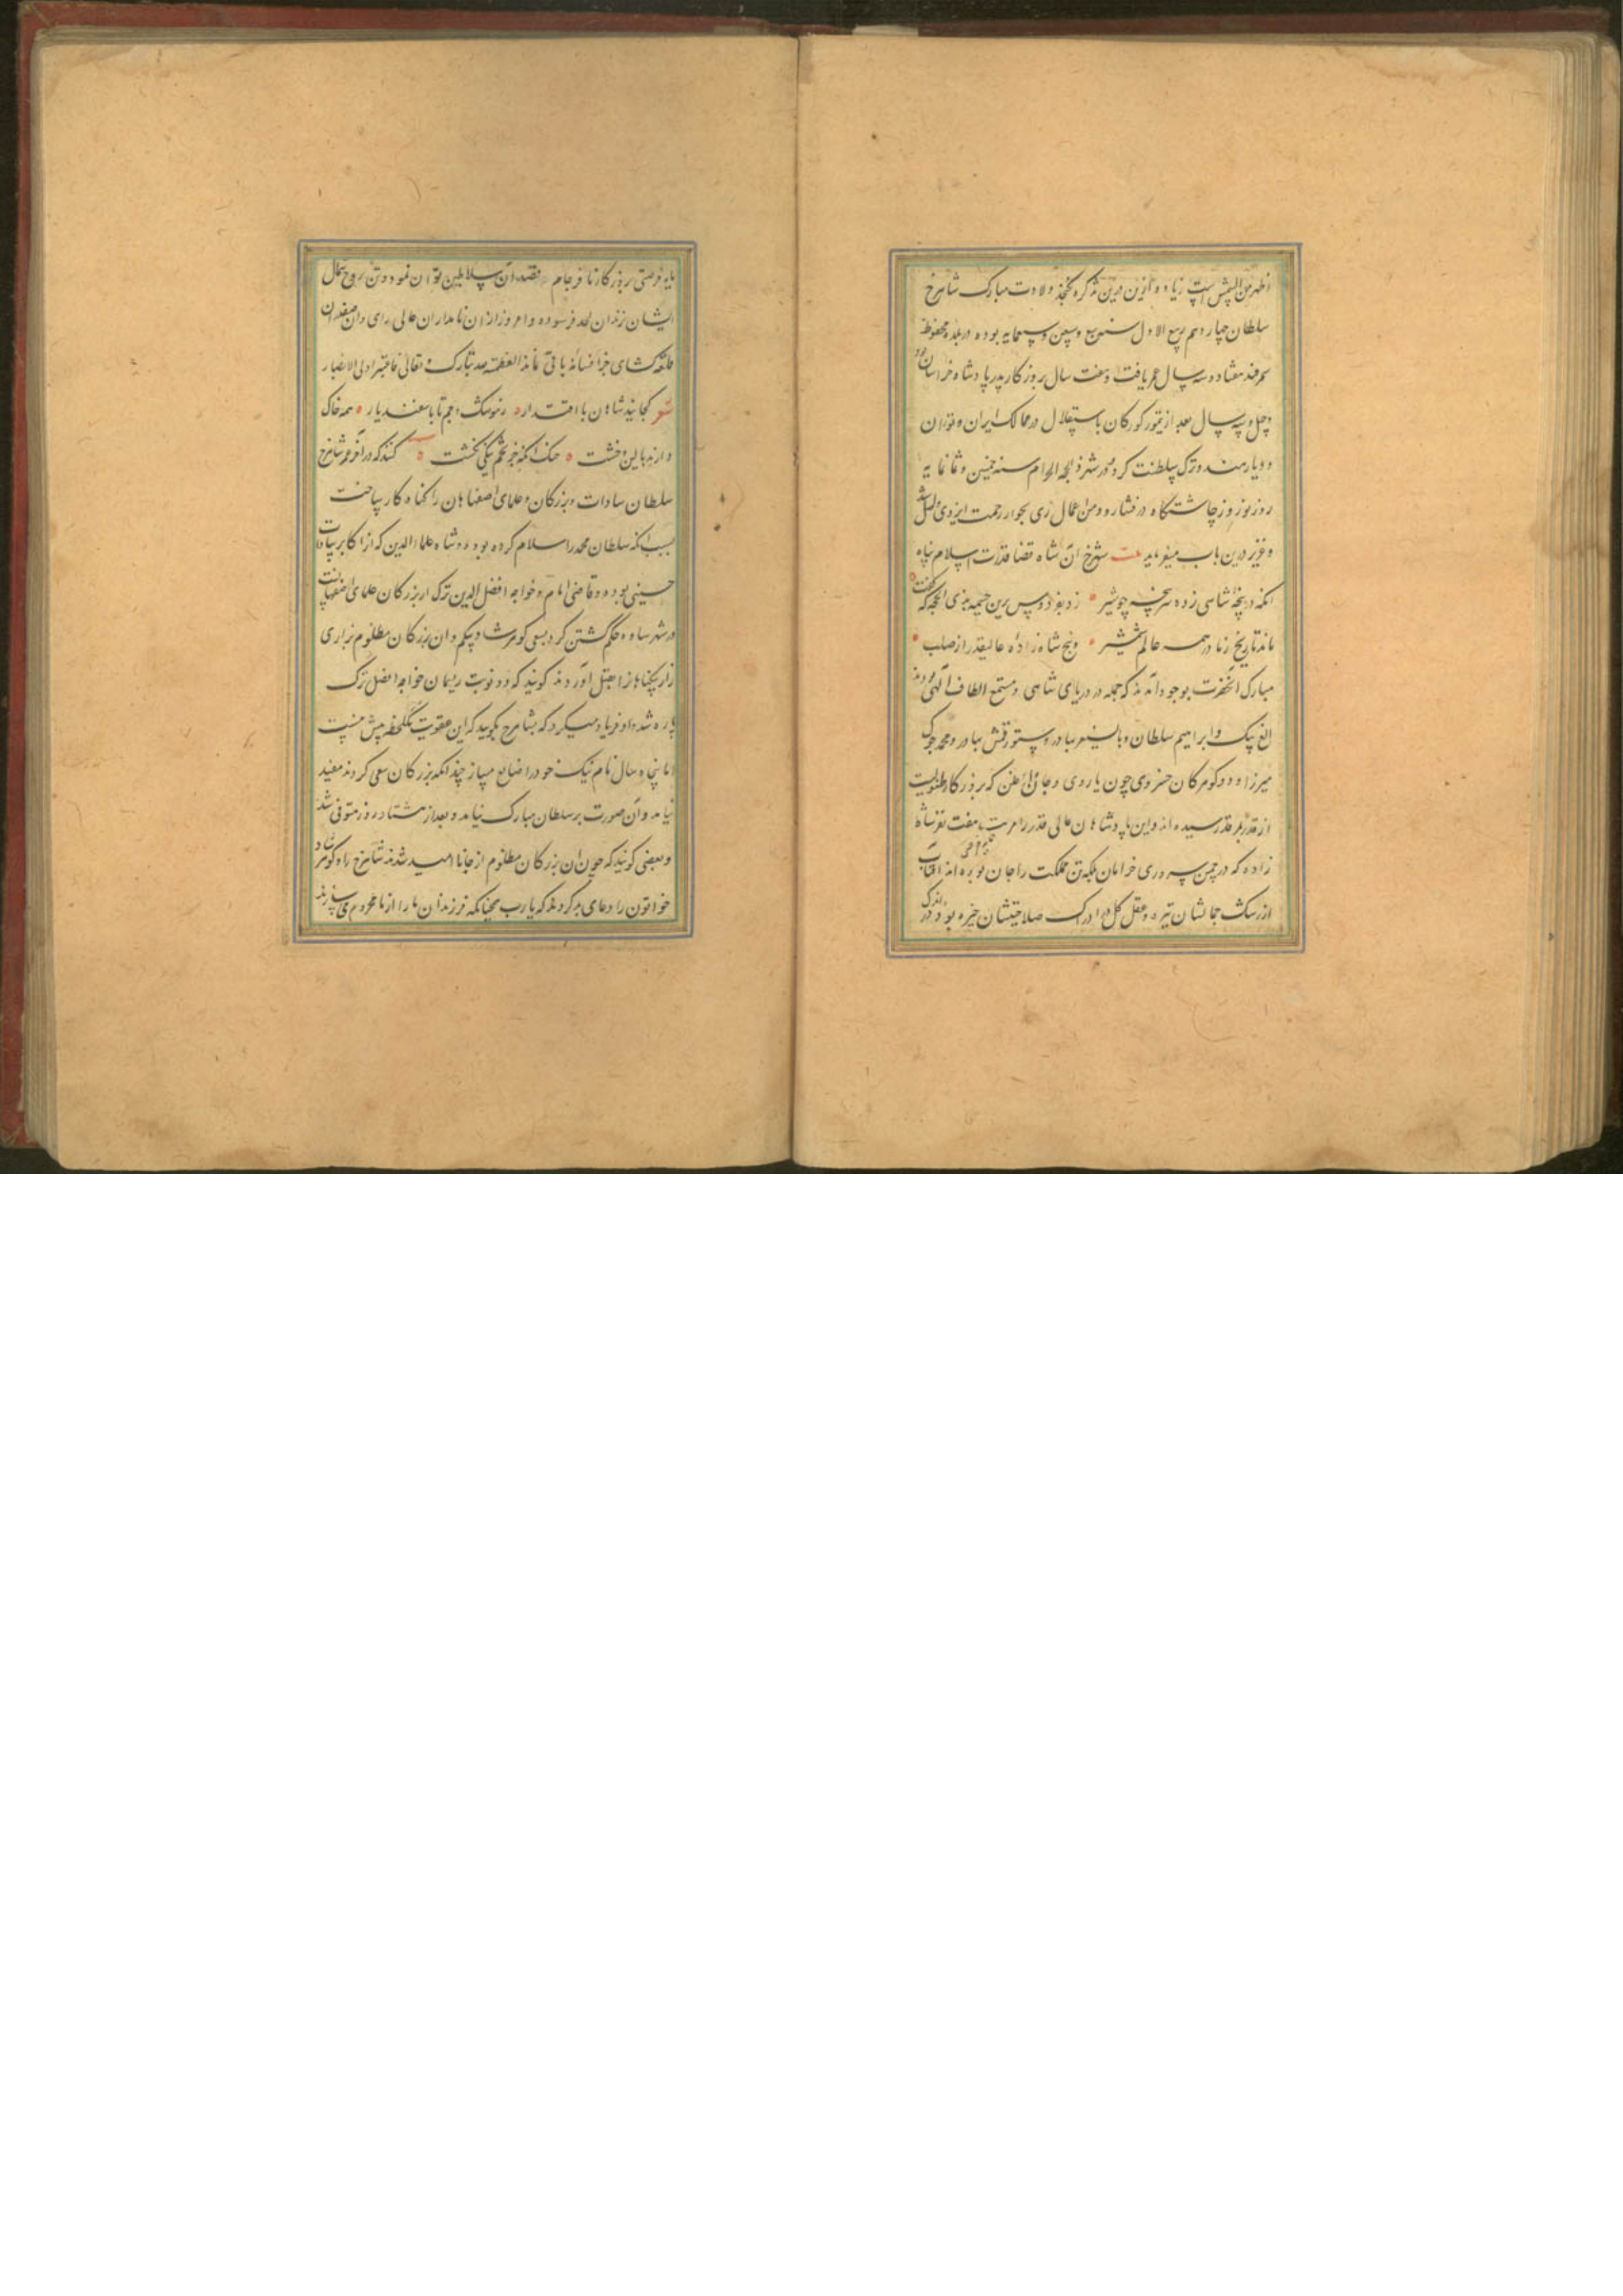 اظهر من الشمس است زیاده ازین درین تذکره نگنجد ولادت مبارک شاهرخ
سلطان چهاردهم ربیع الاول سنه سبع وسبعین وسبعمایه بوده در بلده محفوظه
سمرقند هفتاد و سه سال عمر یافت و هفت سال بروزکار پدر پادشاه خراسان بود
و چهل و سه سال بعد از تیمور کورکان باستقلال در ممالک ایران و توران
و دیار هند و ترک سلطنت کرد در شهر ذی الحجه الحرام سنه خمسین و ثمانمایه
روز نوروز چاشتکاه در فشارود من اعمال ری بجوار رحمت ایزدی واصل شد
و عزیز درین باب میفرماید بیت شهرخ آن شاه قضا قدرت اسلام پناه
انکه در بیخه شاهی زده سرپنجه چو شیر زد بفردوس برین خیمه بذی الحجه که کفت
ماند تاریخ زما در همه عالم شمشیر و پنج شاه زاده عالیقدر از صلب
مبارک انحضرت بوجود آمدند که جمله در دریای شاهی و مستجمع الطاف الهی بودند
الغ بیک و ابراهیم سلطان و بایسنغر بهادر و سیورغتمش بهادر و محمد جوکی
میرزا و دو کوهر کان خسروی چون یاردی و جان اغلن که بروزکار طفولیت
از قدر بقدر رسیده اند و این پادشاهان عالی قدر را مرتبه هفت نفر شاه
زاده که در چمن سروری خرامان بلکه تن مملکت را جان بوده اند افتاب
از رشک جمالشان تیره و عقل کل در ادراک صلاحیتشان خیره بود در اندک
مایه فرصتی روزکار نافرجام قصد آن سلاطین توران نمود و تن روح مثال
ایشان زندان لحد فرسوده و امروز از ان نامداران عالی رای و ان صفدران
قلعه کشای جز افسانه باقی نماند العظمة لله تبارک و تعالی فاعتبروا یا اولی الابصار
شعر کجایند شاهان با اقتدار ز هوشنک و جم تا باسفندیار همه خاک
دارند بالین و خشت خنک انکه جز تخم نیکی نکشت کنند که در آخر عمر شاهرخ
سلطان سادات و بزرکان و علمای اصفهان را کناه کار ساخت
بسبب انکه سلطان محمد را سلام کرده بودند و شاه علاء الدین که از اکابر سادات
حسینی بوده و قاضی امام و خواجه افضل الدین ترک از بزرکان علمای اصفهانست
در شهر ساوه حکم کشتن کرد بسعی کوهرشاد بیکم و ان بزرکان مظلوم بزاری
زار بیکناه را بقتل اوردند کویند که دو نوبت ریسمان خواجه افضل ترک
پاره شد و او فریاد میکرد که بشاهرخ بکویید که این عقوبت یکلحظه بیش نیست
اما پنجاه سال نام نیک خود را ضایع مساز چند انکه بزرکان سعی کردند مفید
نیامد و آن صورت بر سلطان مبارک نیامد و بعد از هشتاد روز متوفی شد
و بعضی کویند که چون ان بزرکان مظلوم از جان نا امید شدند شاهرخ را و کوهرشاد
خواتون را دعای بد کردند که یا رب همچنانکه فرزندان ما را از ما محروم می سازند